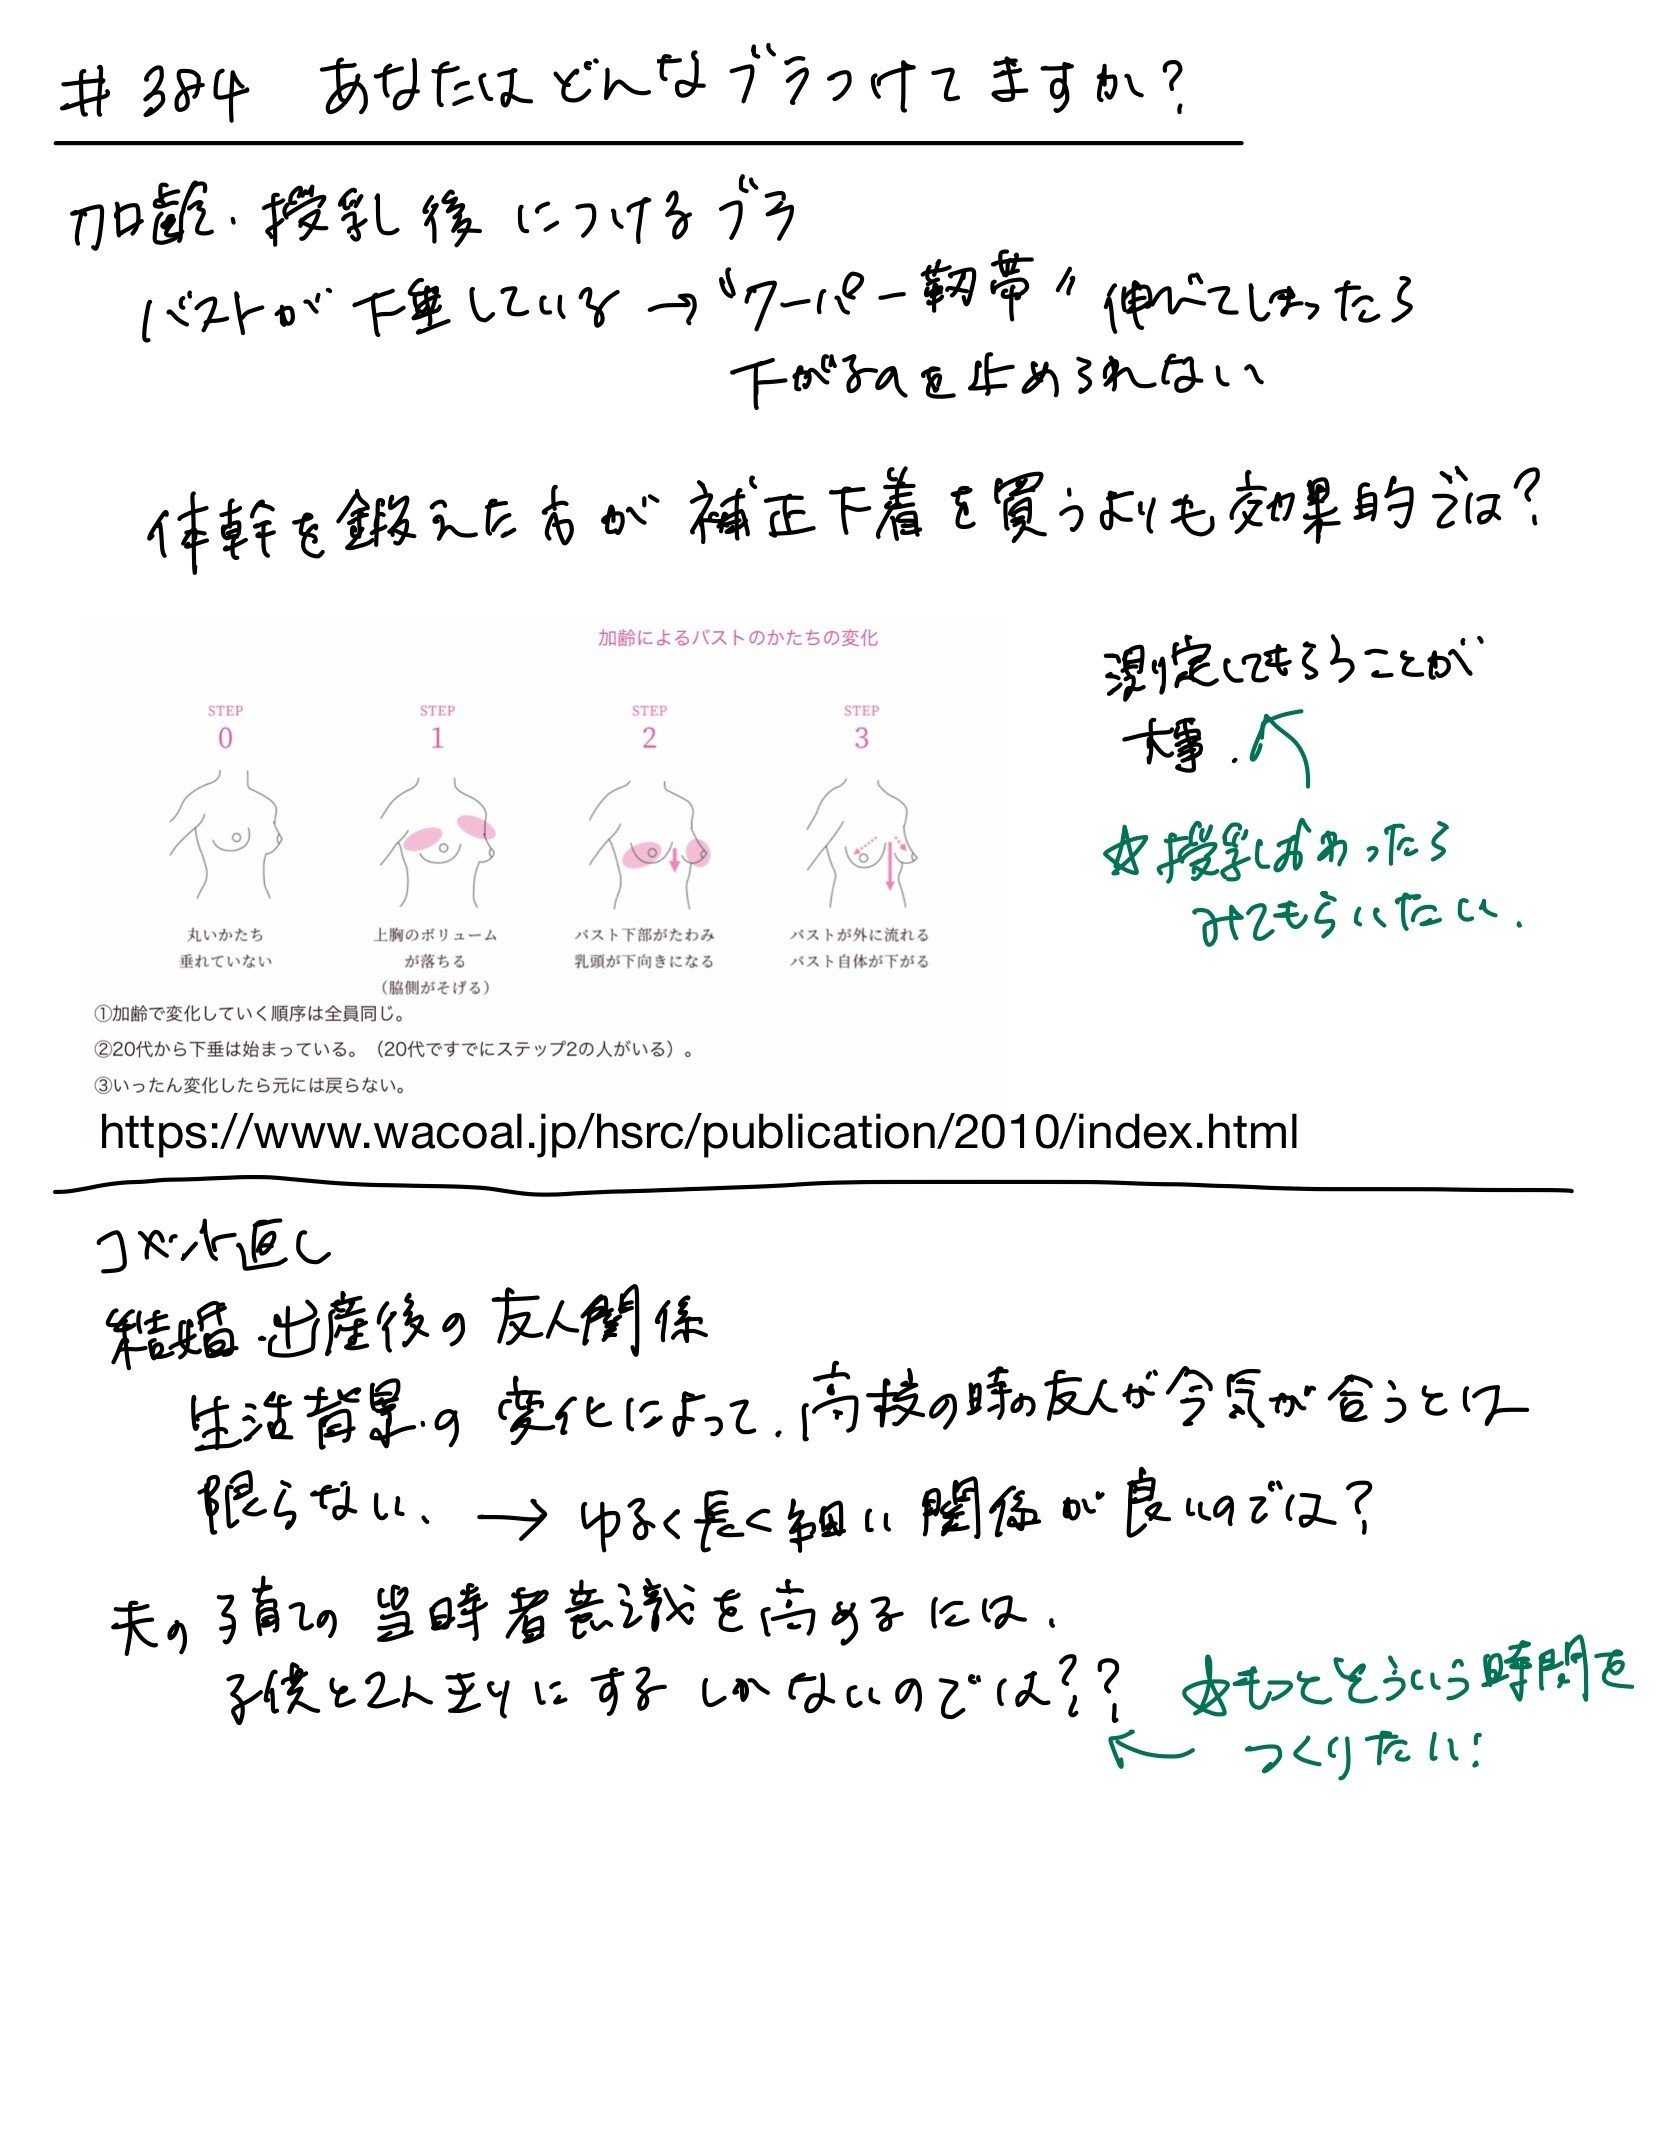 # 384 あなたはどんなブラつけてますか?
加齢・授乳後につけるブラ
バストが下垂している → "クーパー靭帯" 伸びてしまったら
下がるのを止められない
体幹を鍛えた方が補正下着を買うよりも効果的では?
加齢によるバストのかたちの変化
STEP
0
STEP
1
STEP
2
STEP
3
丸いかたち
垂れていない
上胸のボリューム
が落ちる
（脇側がそげる）
バスト下部がたわみ
乳頭が下向きになる
バストが外に流れる
バスト自体が下がる
測定してもらうことが
大事.
☆授乳おわったら
みてもらいたい.
①加齢で変化していく順序は全員同じ。
②20代から下垂は始まっている。（20代ですでにステップ2の人がいる）。
③いったん変化したら元には戻らない。
https://www.wacoal.jp/hsrc/publication/2010/index.html
コメント返し
結婚・出産後の友人関係
生活背景の変化によって、高校の時の友人が今気が合うとは
限らない、→ ゆるく長く細い関係が良いのでは?
夫の子育ての当時者意識を高めるには、
子供と2人きりにするしかないのでは??
☆もっとそういう時間を
つくりたい!